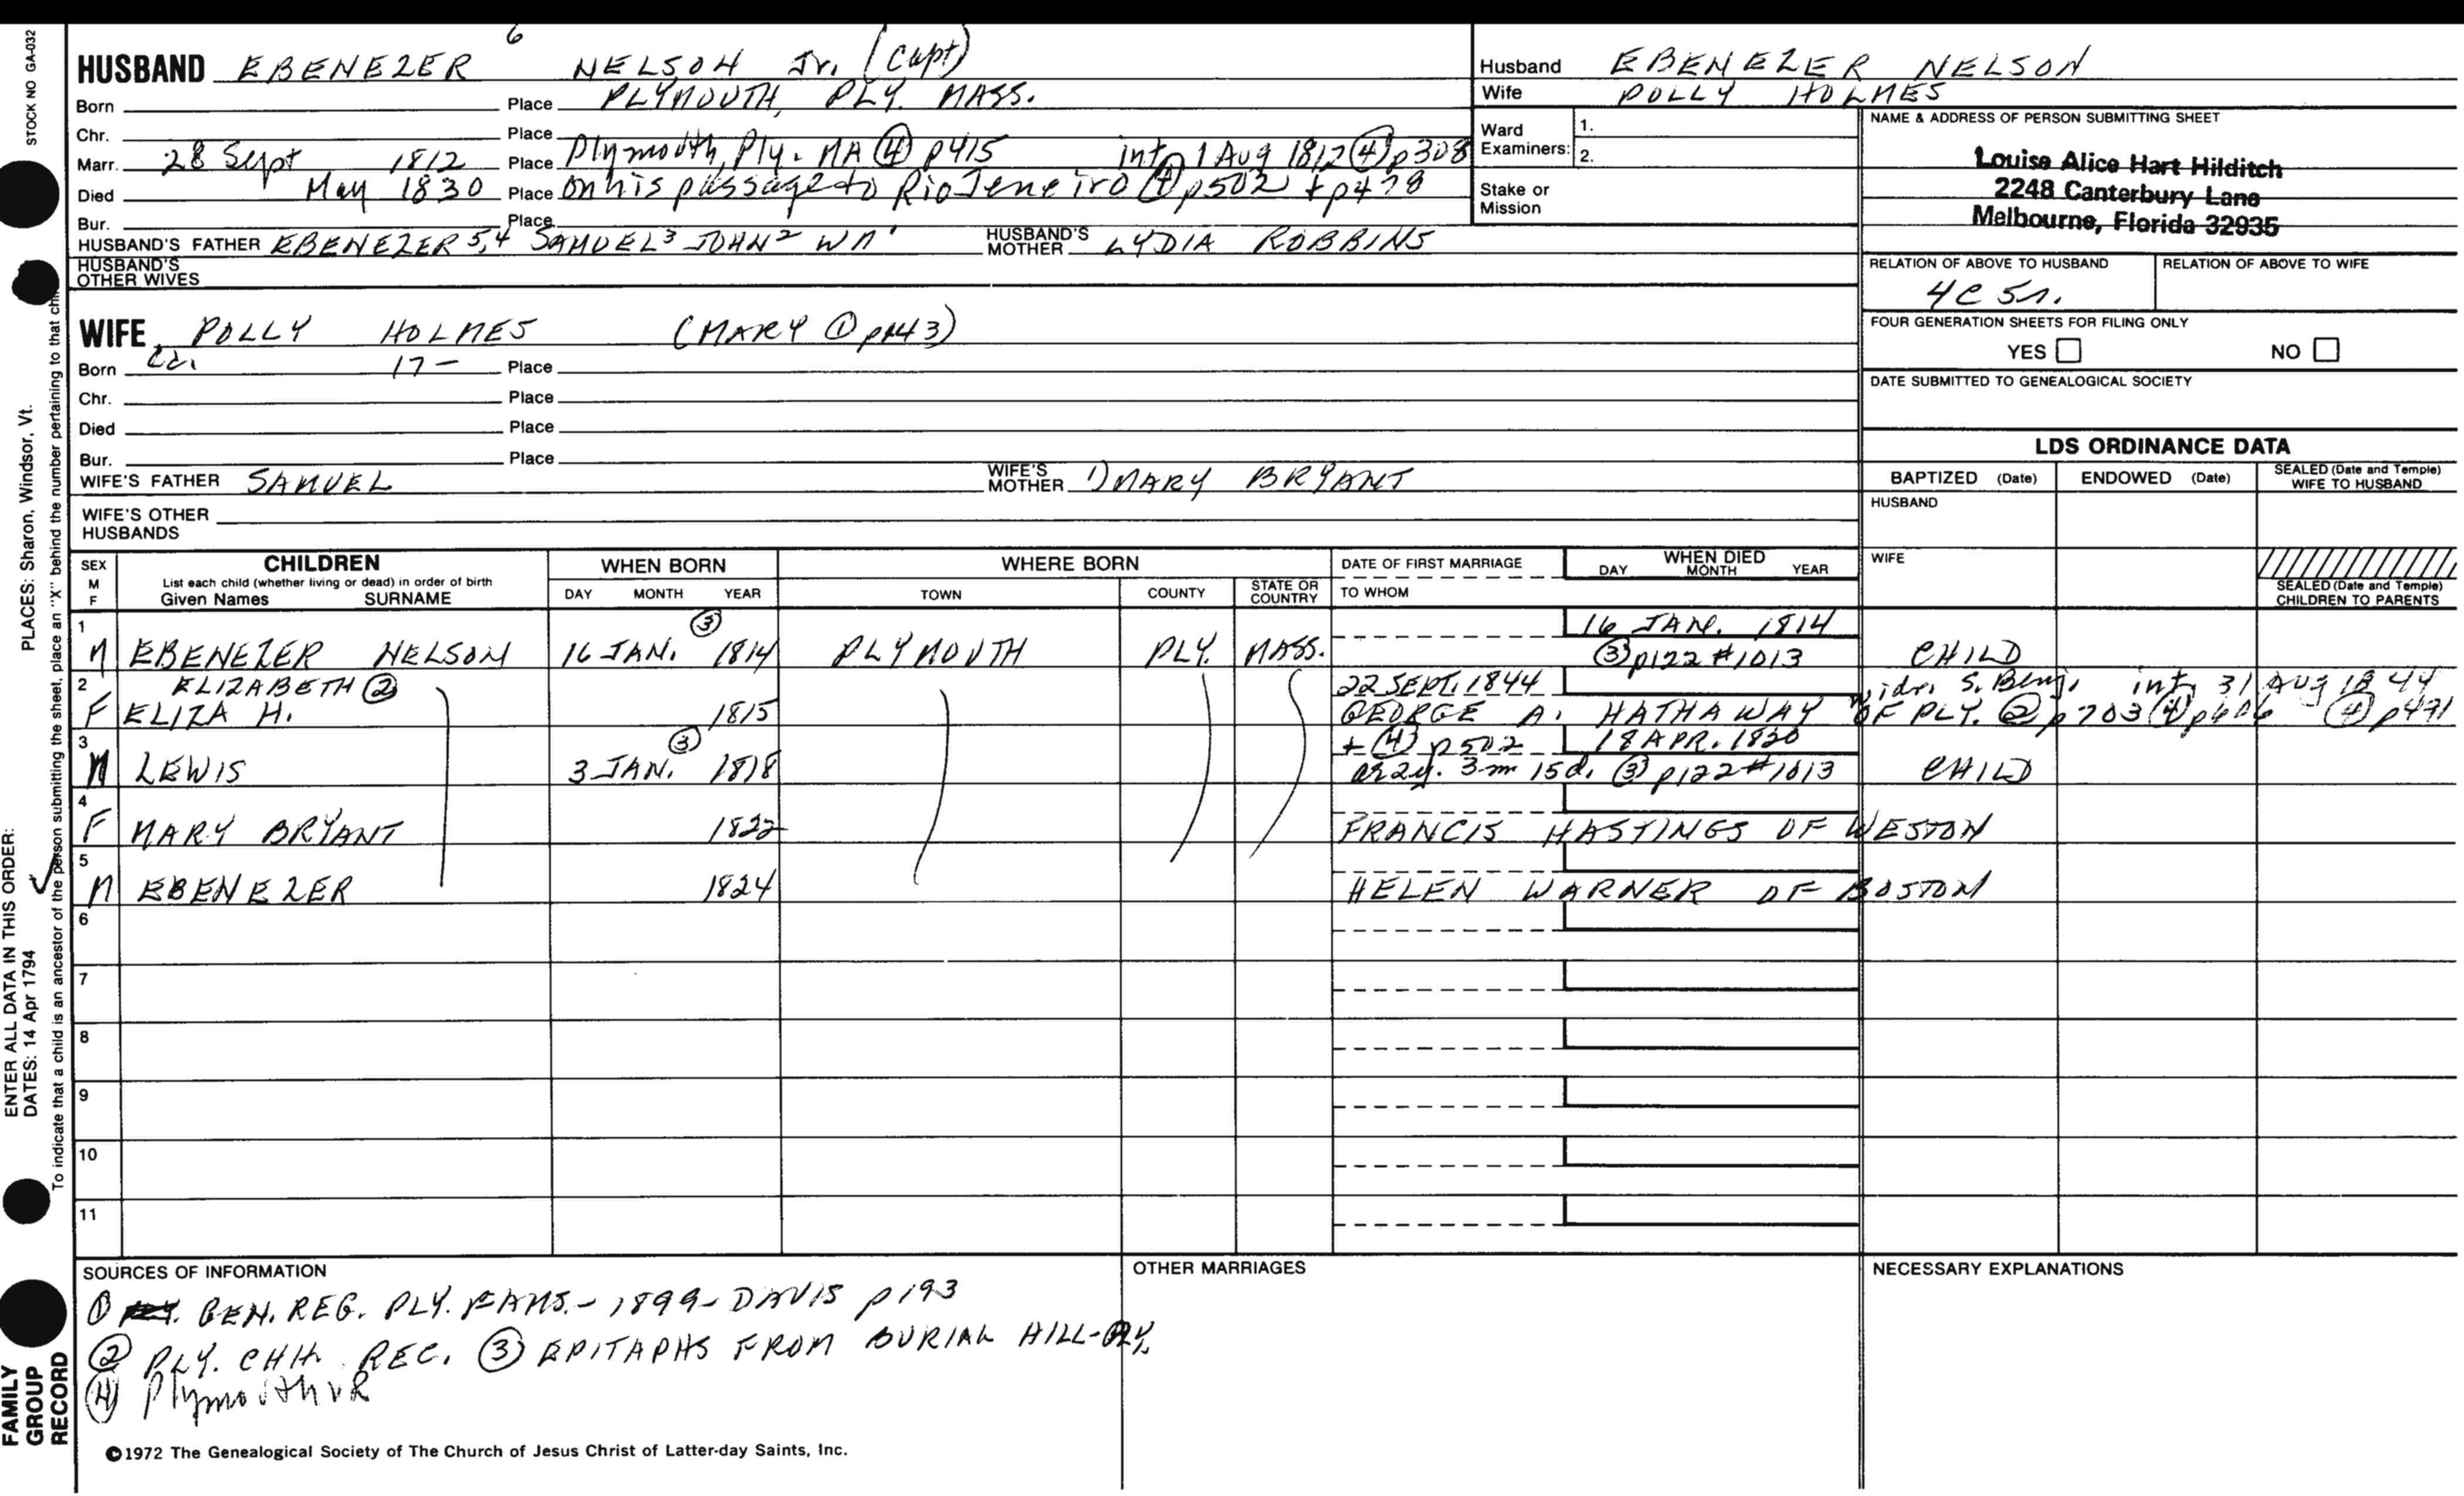 STOCK NO GA-032
HUSBAND EBENEZER 6 NELSON Jr. (Capt)
Born Place PLYMOUTH, PLY. MASS.
Chr. Place
Marr. 28 Sept 1812 Place Plymouth, Ply. MA ④ p415 int 1 Aug 1812 ④ p308
Died May 1830 Place on his passage to Rio Jeneiro ④ p502 + p478
Bur. Place
HUSBAND'S FATHER EBENEZER 5,4 SAMUEL 3 JOHN 2 Wm 1 HUSBAND'S MOTHER LYDIA ROBBINS
HUSBAND'S OTHER WIVES
WIFE POLLY HOLMES (MARY ① p143)
Born Ca. 17— Place
Chr. Place
Died Place
Bur. Place
WIFE'S FATHER SAMUEL WIFE'S MOTHER 1) MARY BRYANT
WIFE'S OTHER HUSBANDS
Husband EBENEZER NELSON
Wife POLLY HOLMES
Ward Examiners: 1.
2.
Stake or Mission
NAME & ADDRESS OF PERSON SUBMITTING SHEET
Louise Alice Hart Hilditch
2248 Canterbury Lane
Melbourne, Florida 32935
RELATION OF ABOVE TO HUSBAND RELATION OF ABOVE TO WIFE
4C 5r.
FOUR GENERATION SHEETS FOR FILING ONLY
YES NO
DATE SUBMITTED TO GENEALOGICAL SOCIETY
LDS ORDINANCE DATA
BAPTIZED (Date) ENDOWED (Date) SEALED (Date and Temple) WIFE TO HUSBAND
HUSBAND
WIFE
SEALED (Date and Temple) CHILDREN TO PARENTS
SEX M F
CHILDREN
List each child (whether living or dead) in order of birth
Given Names SURNAME
WHEN BORN
DAY MONTH YEAR
WHERE BORN
TOWN COUNTY STATE OR COUNTRY
DATE OF FIRST MARRIAGE
TO WHOM
WHEN DIED
DAY MONTH YEAR
1 ③ 16 JAN. 1814
M EBENEZER NELSON 16 JAN. 1814 PLYMOUTH PLY. MASS. ③ p122 #1013 CHILD
2 ELIZABETH ② 22 SEPT. 1844 widr. S. Benj. int. 31 AUG 1844
F ELIZA H. 1815 GEORGE A. HATHAWAY OF PLY. ② p703 ④ p606 ④ p471
3 ③ + ④ p502 18 APR. 1820
M LEWIS 3 JAN. 1818 ae 2y. 3m 15d. ③ p122 #1013 CHILD
4
F MARY BRYANT 1822 FRANCIS HASTINGS OF WESTON
5
M EBENEZER 1824 HELEN WARNER OF BOSTON
6
7
8
9
10
11
SOURCES OF INFORMATION
① GEN. REG. PLY. FAMS. - 1899 - DAVIS p193
② PLY. CHH. REC. ③ EPITAPHS FROM BURIAL HILL - PLY.
④ Plymouth VR
OTHER MARRIAGES
NECESSARY EXPLANATIONS
©1972 The Genealogical Society of The Church of Jesus Christ of Latter-day Saints, Inc.
FAMILY
GROUP
RECORD
ENTER ALL DATA IN THIS ORDER:
DATES: 14 Apr 1794
PLACES: Sharon, Windsor, Vt.
To indicate that a child is an ancestor of the person submitting the sheet, place an "X" behind the number pertaining to that